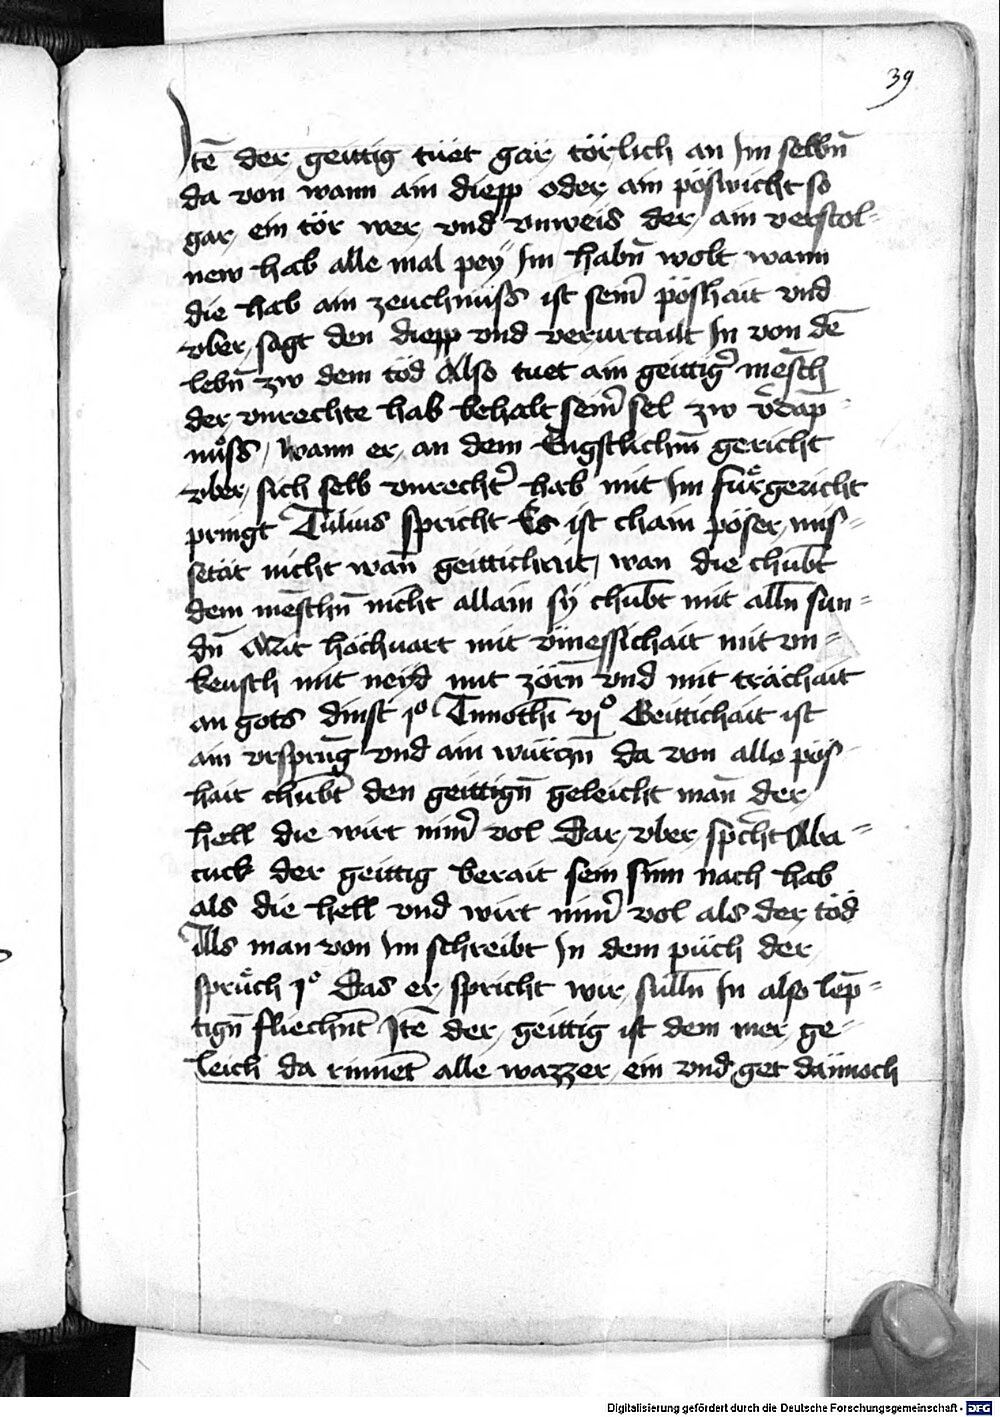 39
Itē der geittig tüet gar törlich an Im selbn̄
da von wann ain diepp oder ain pöswicht so
gar ein tör wer vnd vnweis der ain verstol=
new hab alle mal pey Im habn̄ wolt wann
die hab ain zeuchnüss ist sein̄ pöshait vnd
vber sagt den diepp vnd verurtailt In von dē
lebn̄ zw dem töd Also tuet ain geittig̉ mēsch
der vnrechte hab behalt sein̄ sel zw
müss / wann er an dem Engstlichn̄ gericht
vber sich selb vnrecht̉ hab mit Im für gericht
pringt Tulius spricht Es ist chain pöser mis=
setät nicht wan̄ geittichait / wan die chūbt
dem mēschn̄ nicht allain sÿ chūbt mit alln̄ sun=
dn̄ Mit hochuart mit vnmessichait mit vn=
keusch mit neyd mit zörn̄ vnd mit trächait
an gots dinst 1º Timothei vjº Geittichait ist
ain vrsprūg vnd ain würczn̄ da von alle pös=
hait chūbt den geittign̄ geleicht man̄ der
hell die wirt nim̉ vol Dar vber sp̄cht Aba=
cuck der geittig berait sein sinn nach hab
als die hell vnd wirt nim̉ vol als der töd
Als man von Im schreibt In dem püch der
sprüch 1º Das er spricht wir sulln̄ In also lep̄=
tign̄ fliechn̄t Itē der geittig ist dem mer ge=
leich da rinnēt alle wazzer ein vnd get dannoch
Digitalisierung gefördert durch die Deutsche Forschungsgemeinschaft - DFG